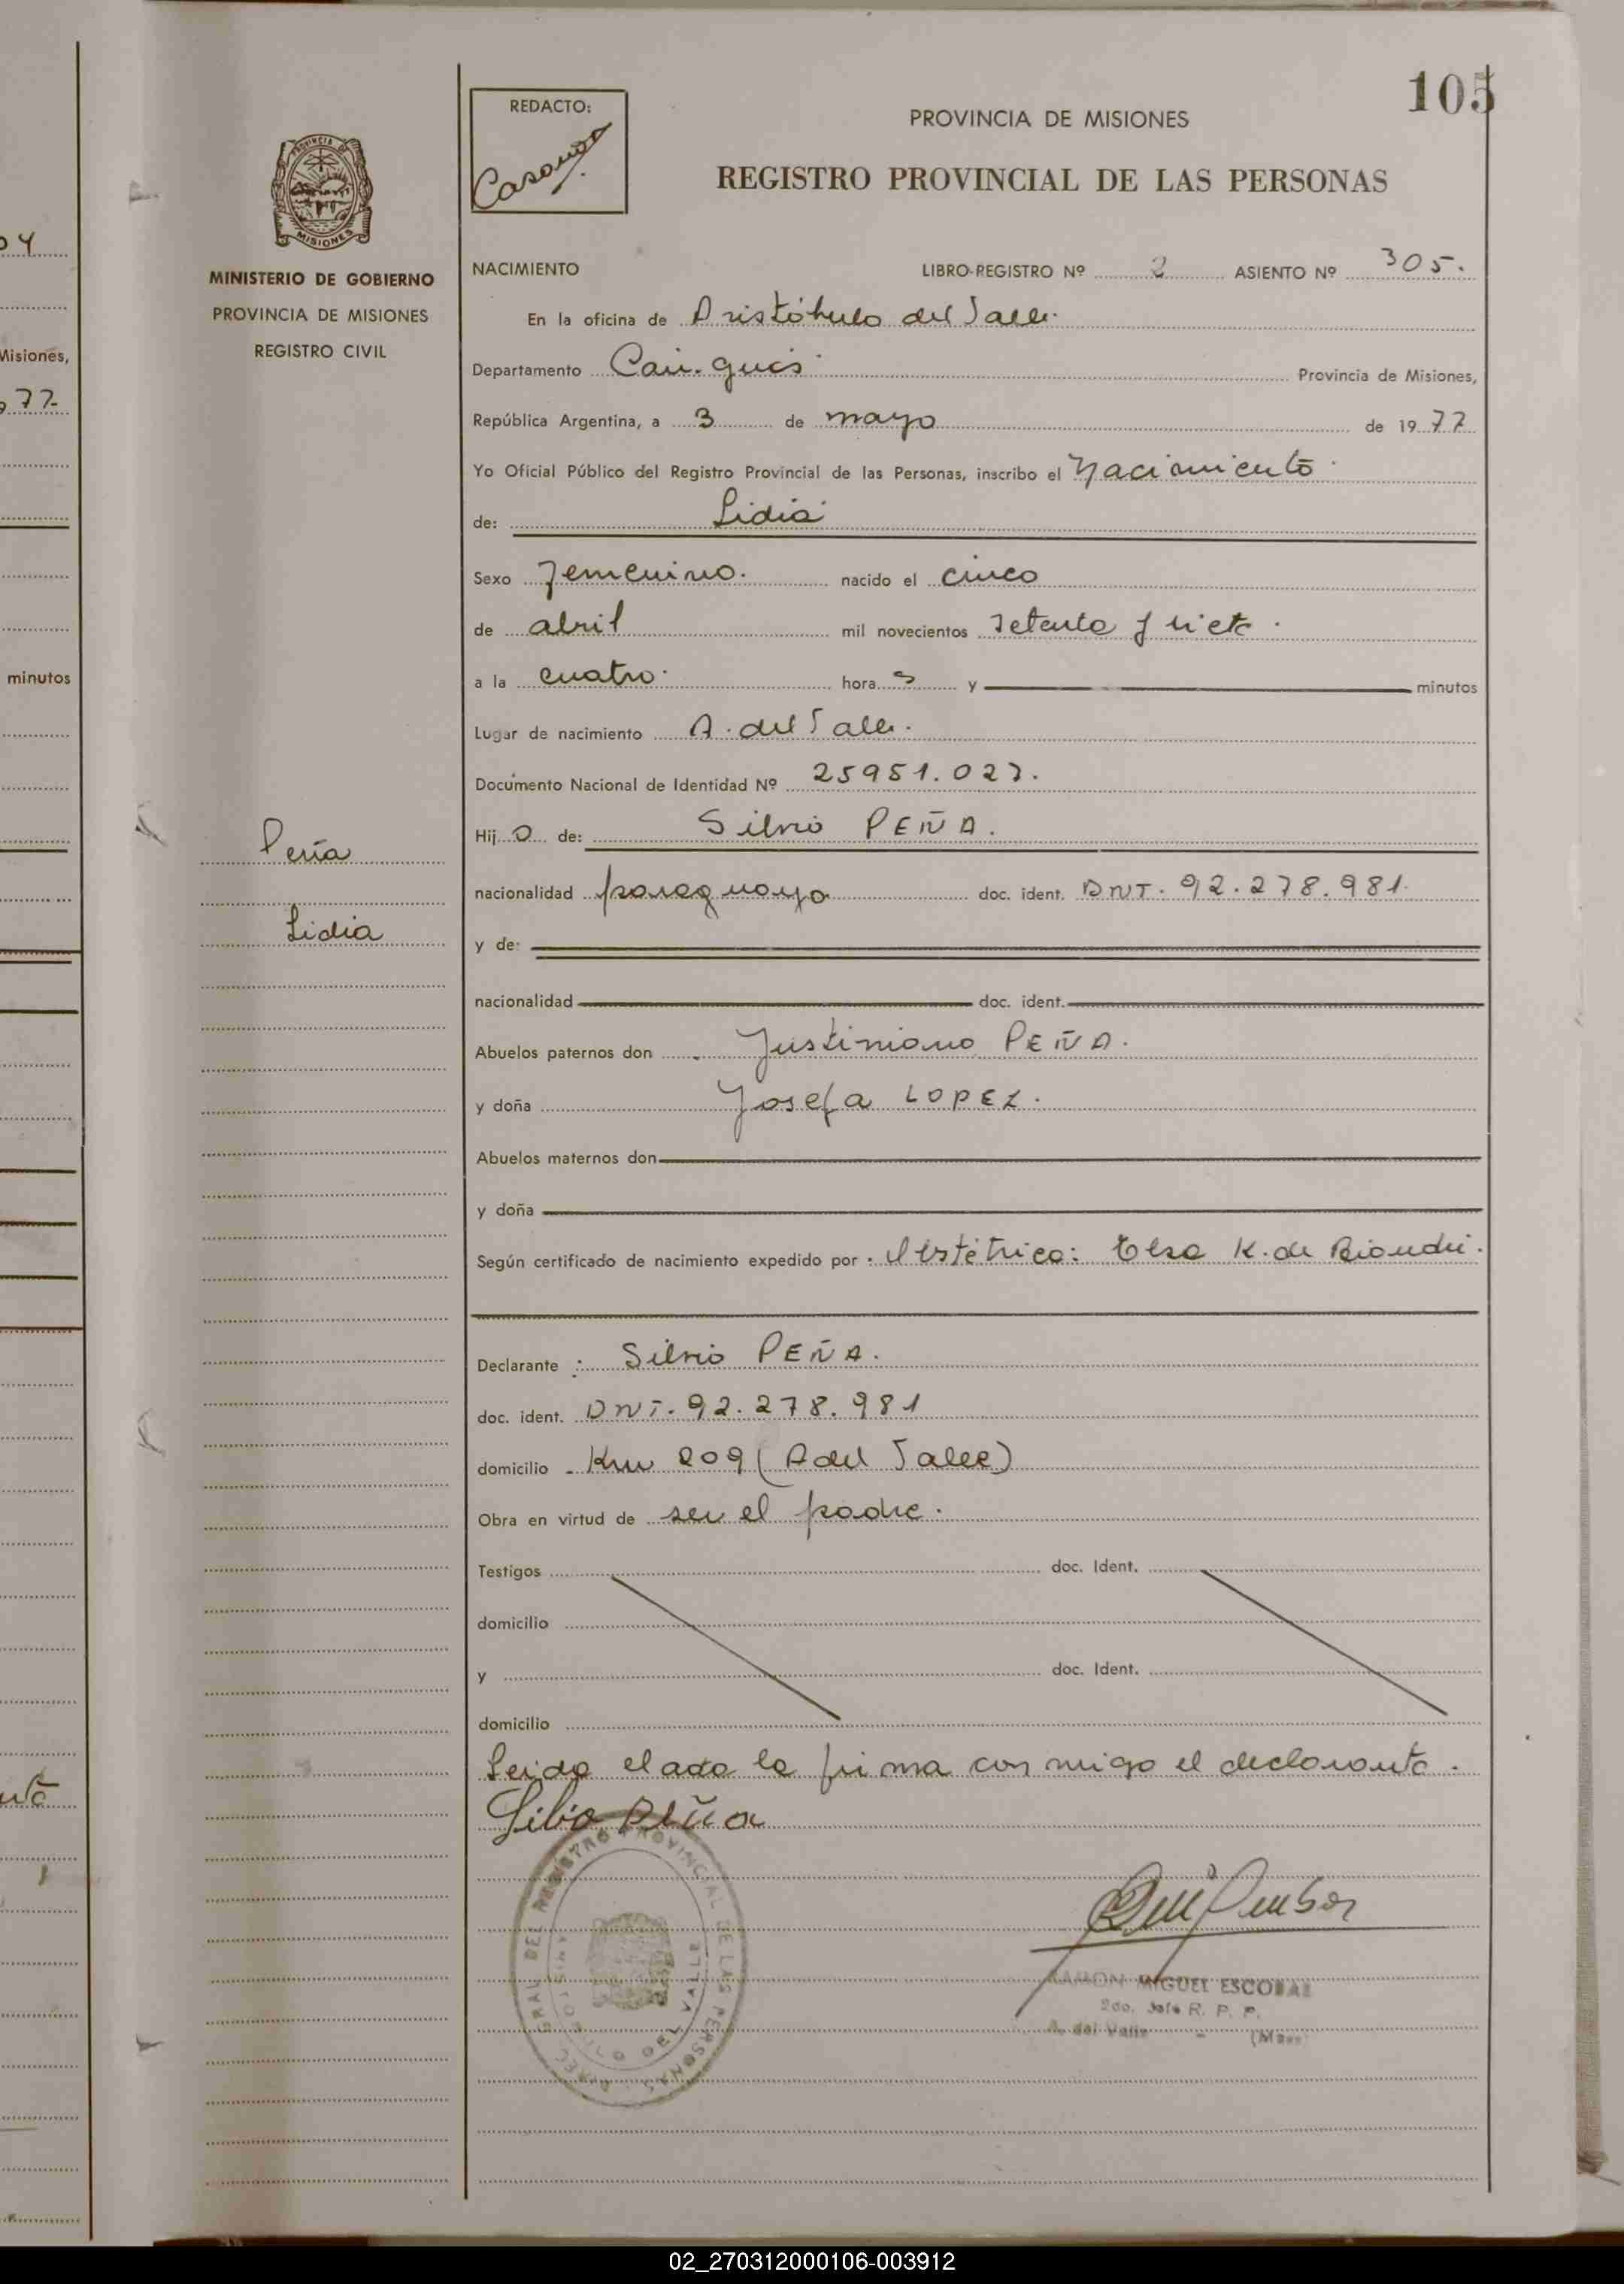 105
REDACTO:
Casanova
PROVINCIA DE MISIONES
REGISTRO PROVINCIAL DE LAS PERSONAS
PROVINCIA DE
MISIONES
MINISTERIO DE GOBIERNO
PROVINCIA DE MISIONES
REGISTRO CIVIL
Misiones,
77
minutos
Peña
Lidia
NACIMIENTO LIBRO-REGISTRO Nº 2 ASIENTO Nº 305.
En la oficina de Aristóbulo del Valle.
Departamento Cain-guás Provincia de Misiones,
República Argentina, a 3 de mayo de 1977
Yo Oficial Público del Registro Provincial de las Personas, inscribo el Nacimiento
de: Lidia
Sexo Femenino. nacido el cinco
de abril mil novecientos setenta y siete.
a la cuatro hora s y minutos
Lugar de nacimiento A. del Valle.
Documento Nacional de Identidad Nº 25951.027.
Hij a de: Silvio PEÑA.
nacionalidad paraguaya doc. ident. DNI. 92.278.981.
y de:
nacionalidad doc. ident.
Abuelos paternos don Justiniano PEÑA.
y doña Josefa LOPEZ.
Abuelos maternos don
y doña
Según certificado de nacimiento expedido por: Obstétrica: Elsa K. de
Declarante: Silvio PEÑA.
doc. ident. DNI. 92.278.981
domicilio Km 209 (A del Valle)
Obra en virtud de ser el padre.
Testigos doc. Ident.
domicilio
y doc. Ident.
domicilio
Leida el acta la firma conmigo el declarante.
Silvio Peña
DIREC. GRAL DEL REGISTRO PROVINCIAL DE LAS PERSONAS
ARISTOBULO DEL VALLE
RAMON MIGUEL ESCOBAR
2do. Jefe R. P. P.
A. del Valle - (Mnes)
02_270312000106-003912